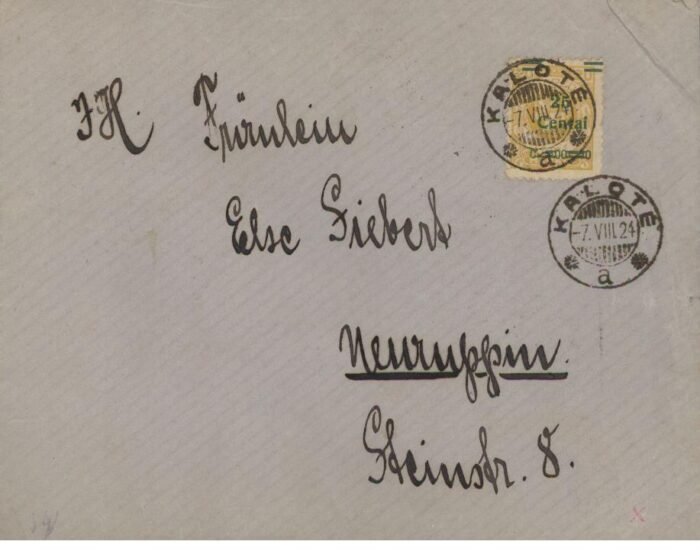 KALOTE
-7.VIII.24
a
25
Centai
KALOTE
-7.VIII.24
a
I.H. Fräulein
Else Siebert
Neuruppin.
Steinstr. 8.